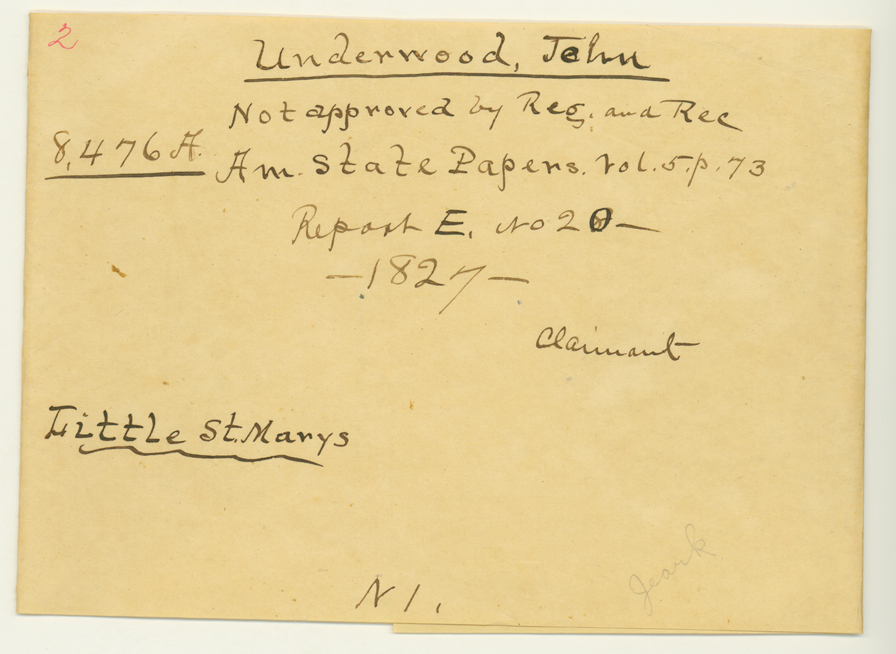 2
Underwood, John
Not approved by Reg. and Rec
8,476 A. Am. State Papers. Vol. 5. p. 73
Report E. No 20 —
— 1827 —
Claimant
Little St. Marys
N 1.